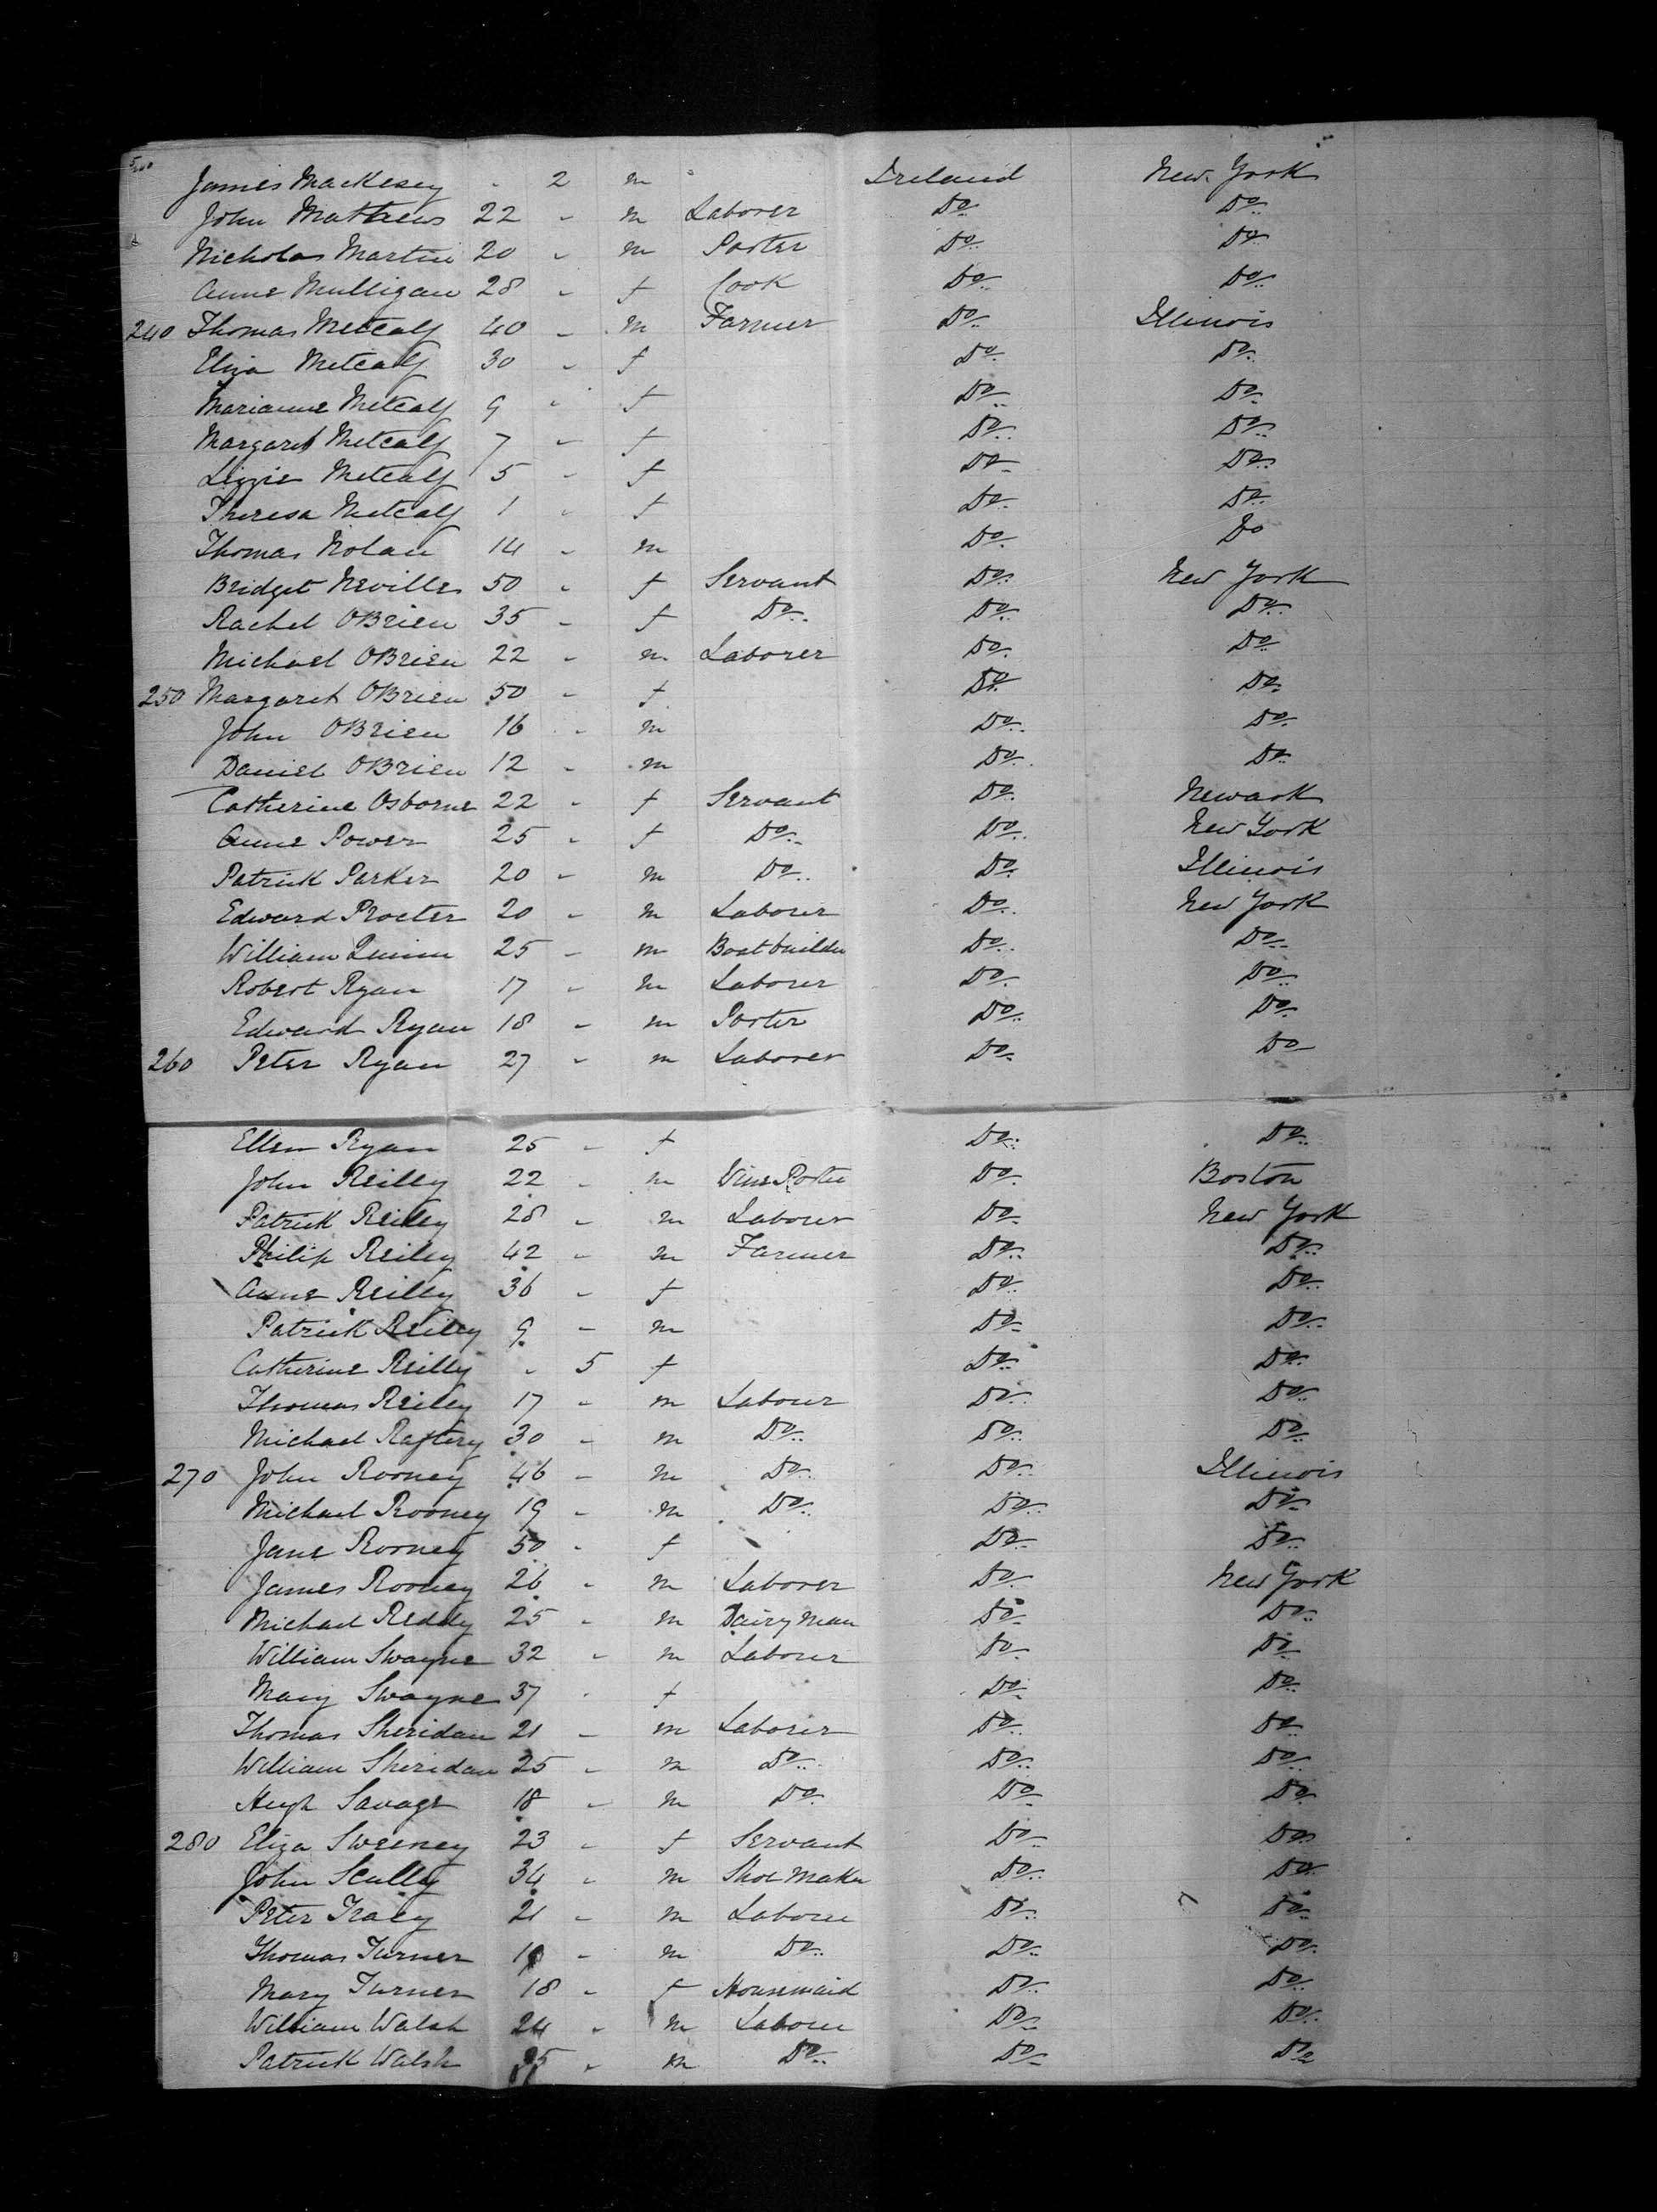 James Mackesey - 2 m Ireland New York
John Mathews 22 - m Laborer Do Do
Nicholas Martin 20 - m Porter Do Do
Anne Mulligan 28 - f Cook Do Do
240 Thomas Metcalf 40 - m Farmer Do Illinois
Eliza Metcalf 30 - f Do Do
Marianne Metcalf 9 - f Do Do
Margaret Metcalf 7 - f Do Do
Lizzie Metcalf 5 - f Do Do
Theresa Metcalf 1 - f Do Do
Thomas Nolan 14 - m Do Do
Bridget Neville 50 - f Servant Do New York
Rachel OBrien 35 - f Do Do Do
Michael OBrien 22 - m Laborer Do Do
250 Margaret OBrien 50 - f Do Do
John OBrien 16 - m Do Do
Daniel OBrien 12 - m Do Do
Catherine Osborne 22 - f Servant Do Newark
Anne Power 25 - f Do Do New York
Patrick Parker 20 - m Do Do Illinois
Edward Procter 20 - m Laborer Do New York
William Quinn 25 - m Boatbuilder Do Do
Robert Ryan 17 - m Laborer Do Do
Edward Ryan 18 - m Porter Do Do
260 Peter Ryan 27 - m Laborer Do Do
Ellen Ryan 25 - f Do Do
John Reilly 22 - m Wine Porter Do Boston
Patrick Reilly 28 - m Laborer Do New York
Philip Reilly 42 - m Farmer Do Do
Anne Reilly 36 - f Do Do
Patrick Reilly 9 - m Do Do
Catherine Reilly - 5 f Do Do
Thomas Reilly 17 - m Laborer Do Do
Michael Raftery 30 - m Do Do Do
270 John Rooney 46 - m Do Do Illinois
Michael Rooney 19 - m Do Do Do
Jane Rooney 50 - f Do Do
James Rooney 26 - m Laborer Do New York
Michael Reddy 25 - m Dairyman Do Do
William Swayne 32 - m Laborer Do Do
Mary Swayne 37 - f Do Do
Thomas Sheridan 21 - m Laborer Do Do
William Sheridan 25 - m Do Do Do
Hugh Savage 18 - m Do Do Do
280 Eliza Sweeney 23 - f Servant Do Do
John Scully 34 - m Shoe Maker Do Do
Peter Tracy 21 - m Laborer Do Do
Thomas Turner - m Do Do Do
Mary Turner 18 - f Housemaid Do Do
William Walsh 24 - m Laborer Do Do
Patrick Walsh - m Do Do Do